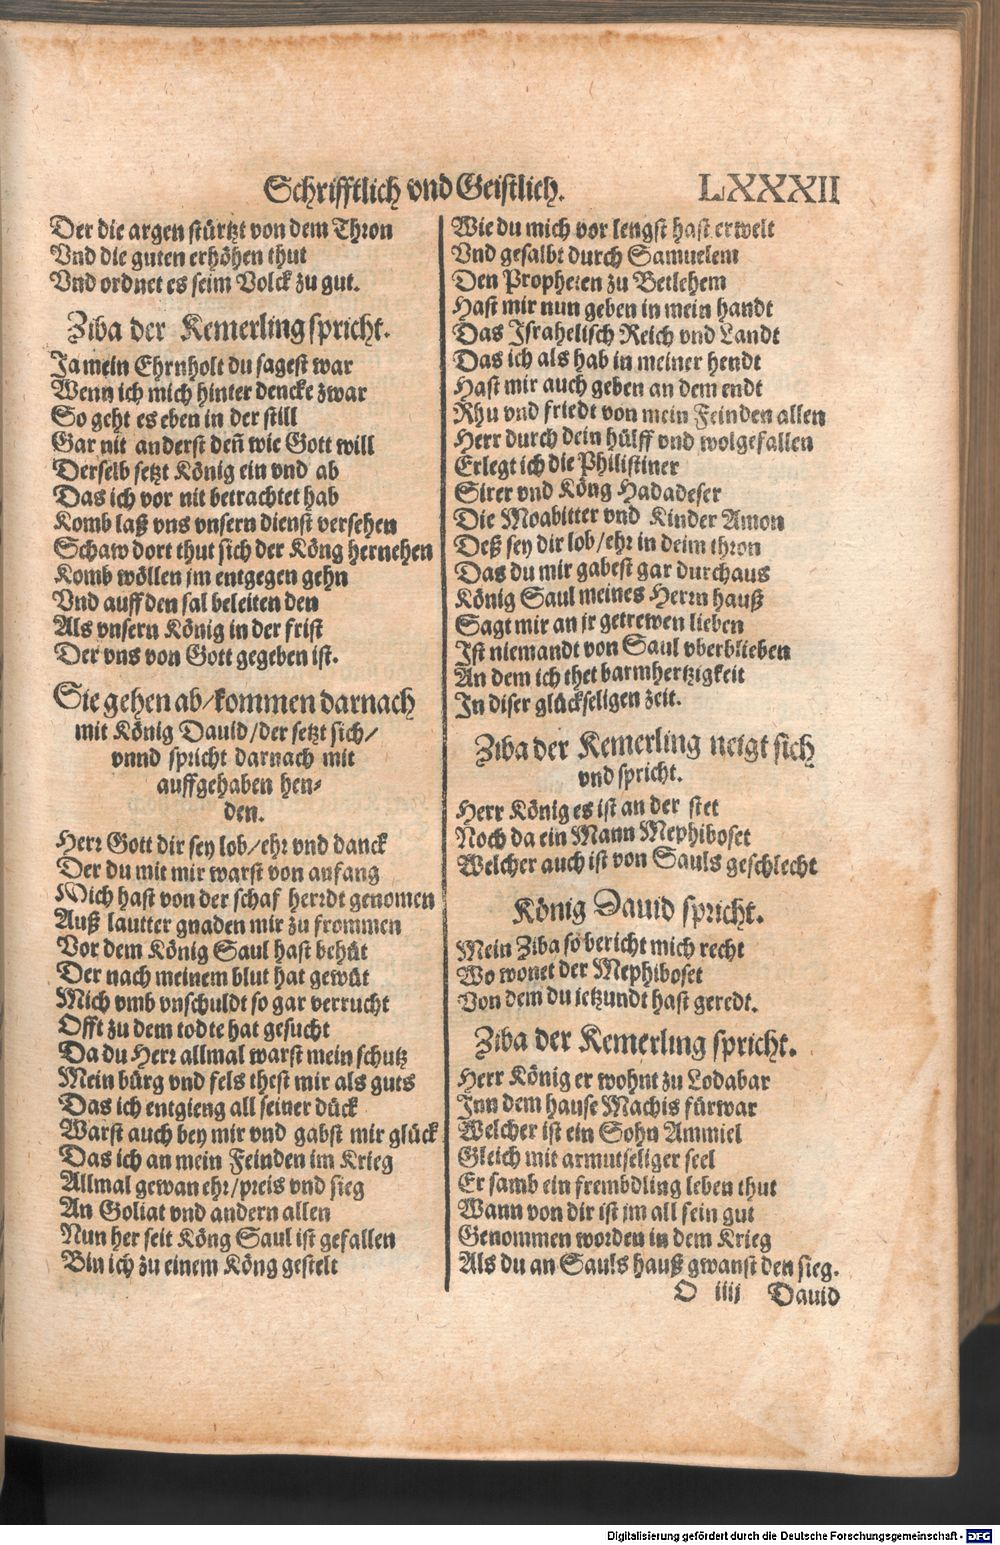 Schrifftlich vnd Geistlich. LXXXII
Der die argen stürtzt von dem Thron
Vnd die guten erhöhen thut
Vnd ordnet es seim Volck zu gut.
Ziba der Kemerling spricht.
Ja mein Ehrnholt du sagest war
Wenn ich mich hinter dencke zwar
So geht es eben in der still
Gar nit anderst deñ wie Gott will
Derselb setzt König ein vnd ab
Das ich vor nit betrachtet hab
Komb laß vns vnsern dienst versehen
Schaw dort thut sich der Köng hernehen
Komb wöllen jm entgegen gehn
Vnd auff den sal beleiten den
Als vnsern König in der frist
Der vns von Gott gegeben ist.
Sie gehen ab/kommen darnach
mit König Dauid/der setzt sich/
vnnd spricht darnach mit
auffgehaben hen-
den.
Herr Gott dir sey lob/ehr vnd danck
Der du mit mir warst von anfang
Mich hast von der schaf herrdt genomen
Auß lautter gnaden mir zu frommen
Vor dem König Saul hast behüt
Der nach meinem blut hat gewüt
Mich vmb vnschuldt so gar verrucht
Offt zu dem todte hat gesucht
Da du Herr allmal warst mein schutz
Mein bürg vnd fels thest mir als guts
Das ich entgieng all seiner dück
Warst auch bey mir vnd gabst mir glück
Das ich an mein Feinden im Krieg
Allmal gewan ehr/preis vnd sieg
An Goliat vnd andern allen
Nun her seit Köng Saul ist gefallen
Bin ich zu einem Köng gestelt
Wie du mich vor lengst hast erwelt
Vnd gesalbt durch Samuelem
Den Propheten zu Betlehem
Hast mir nun geben in mein handt
Das Israhelisch Reich vnd Landt
Das ich als hab in meiner hendt
Hast mir auch geben an dem endt
Rhu vnd friedt von mein Feinden allen
Herr durch dein hülff vnd wolgefallen
Erlegt ich die Philistiner
Sirer vnd Köng Hadadeser
Die Moabitter vnd Kinder Amon
Deß sey dir lob/ehr in deim thron
Das du mir gabest gar durchaus
König Saul meines Herrn hauß
Sagt mir an jr getrewen lieben
Ist niemandt von Saul vberblieben
An dem ich thet barmhertzigkeit
In diser glückseligen zeit.
Ziba der Kemerling neigt sich
vnd spricht.
Herr König es ist an der stet
Noch da ein Mann Mephiboset
Welcher auch ist von Sauls geschlecht
König Dauid spricht.
Mein Ziba so bericht mich recht
Wo wonet der Mephiboset
Von dem du jetzundt hast geredt.
Ziba der Kemerling spricht.
Herr König er wohnt zu Lodabar
Inn dem hause Machis fürwar
Welcher ist ein Sohn Ammiel
Gleich mit armutseliger seel
Er samb ein frembdling leben thut
Wann von dir ist jm all sein gut
Genommen worden in dem Krieg
Als du an Sauls hauß gwanst den sieg.
O iiij Dauid
Digitalisierung gefördert durch die Deutsche Forschungsgemeinschaft - DFG